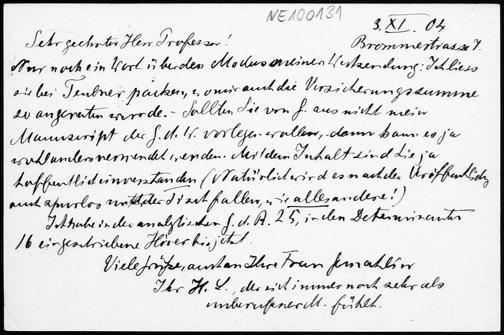 NE100131
3. XI. 04
Brommerstrasse 7.
Sehr geehrter Herr Professor!
Nur noch ein Wort über den Modus meiner Wertsendung: Ich liess
sie bei Teubner packen, wo mir auch die Versicherungssumme
so angeraten wurde. – Sollten Sie von S. aus nicht mein
Manuscript der G. d. W. vorlegen wollen, dann kann es ja
wohl anders verwendet werden. Mit dem Inhalt sind Sie ja
hoffentlich einverstanden (Natürlich wird es nach der Veröffentlichg
auch spurlos unter den Tisch fallen, wie alles andere!)
Ich habe in der analytischen G. d. R. 25, in den Determinanten
16 eingeschriebene Hörer bis jetzt.
Viele Grüsse auch an Ihre Frau Gemahlin
Ihr H. L., der sich immer noch sehr als
unberufener M. fühlt.